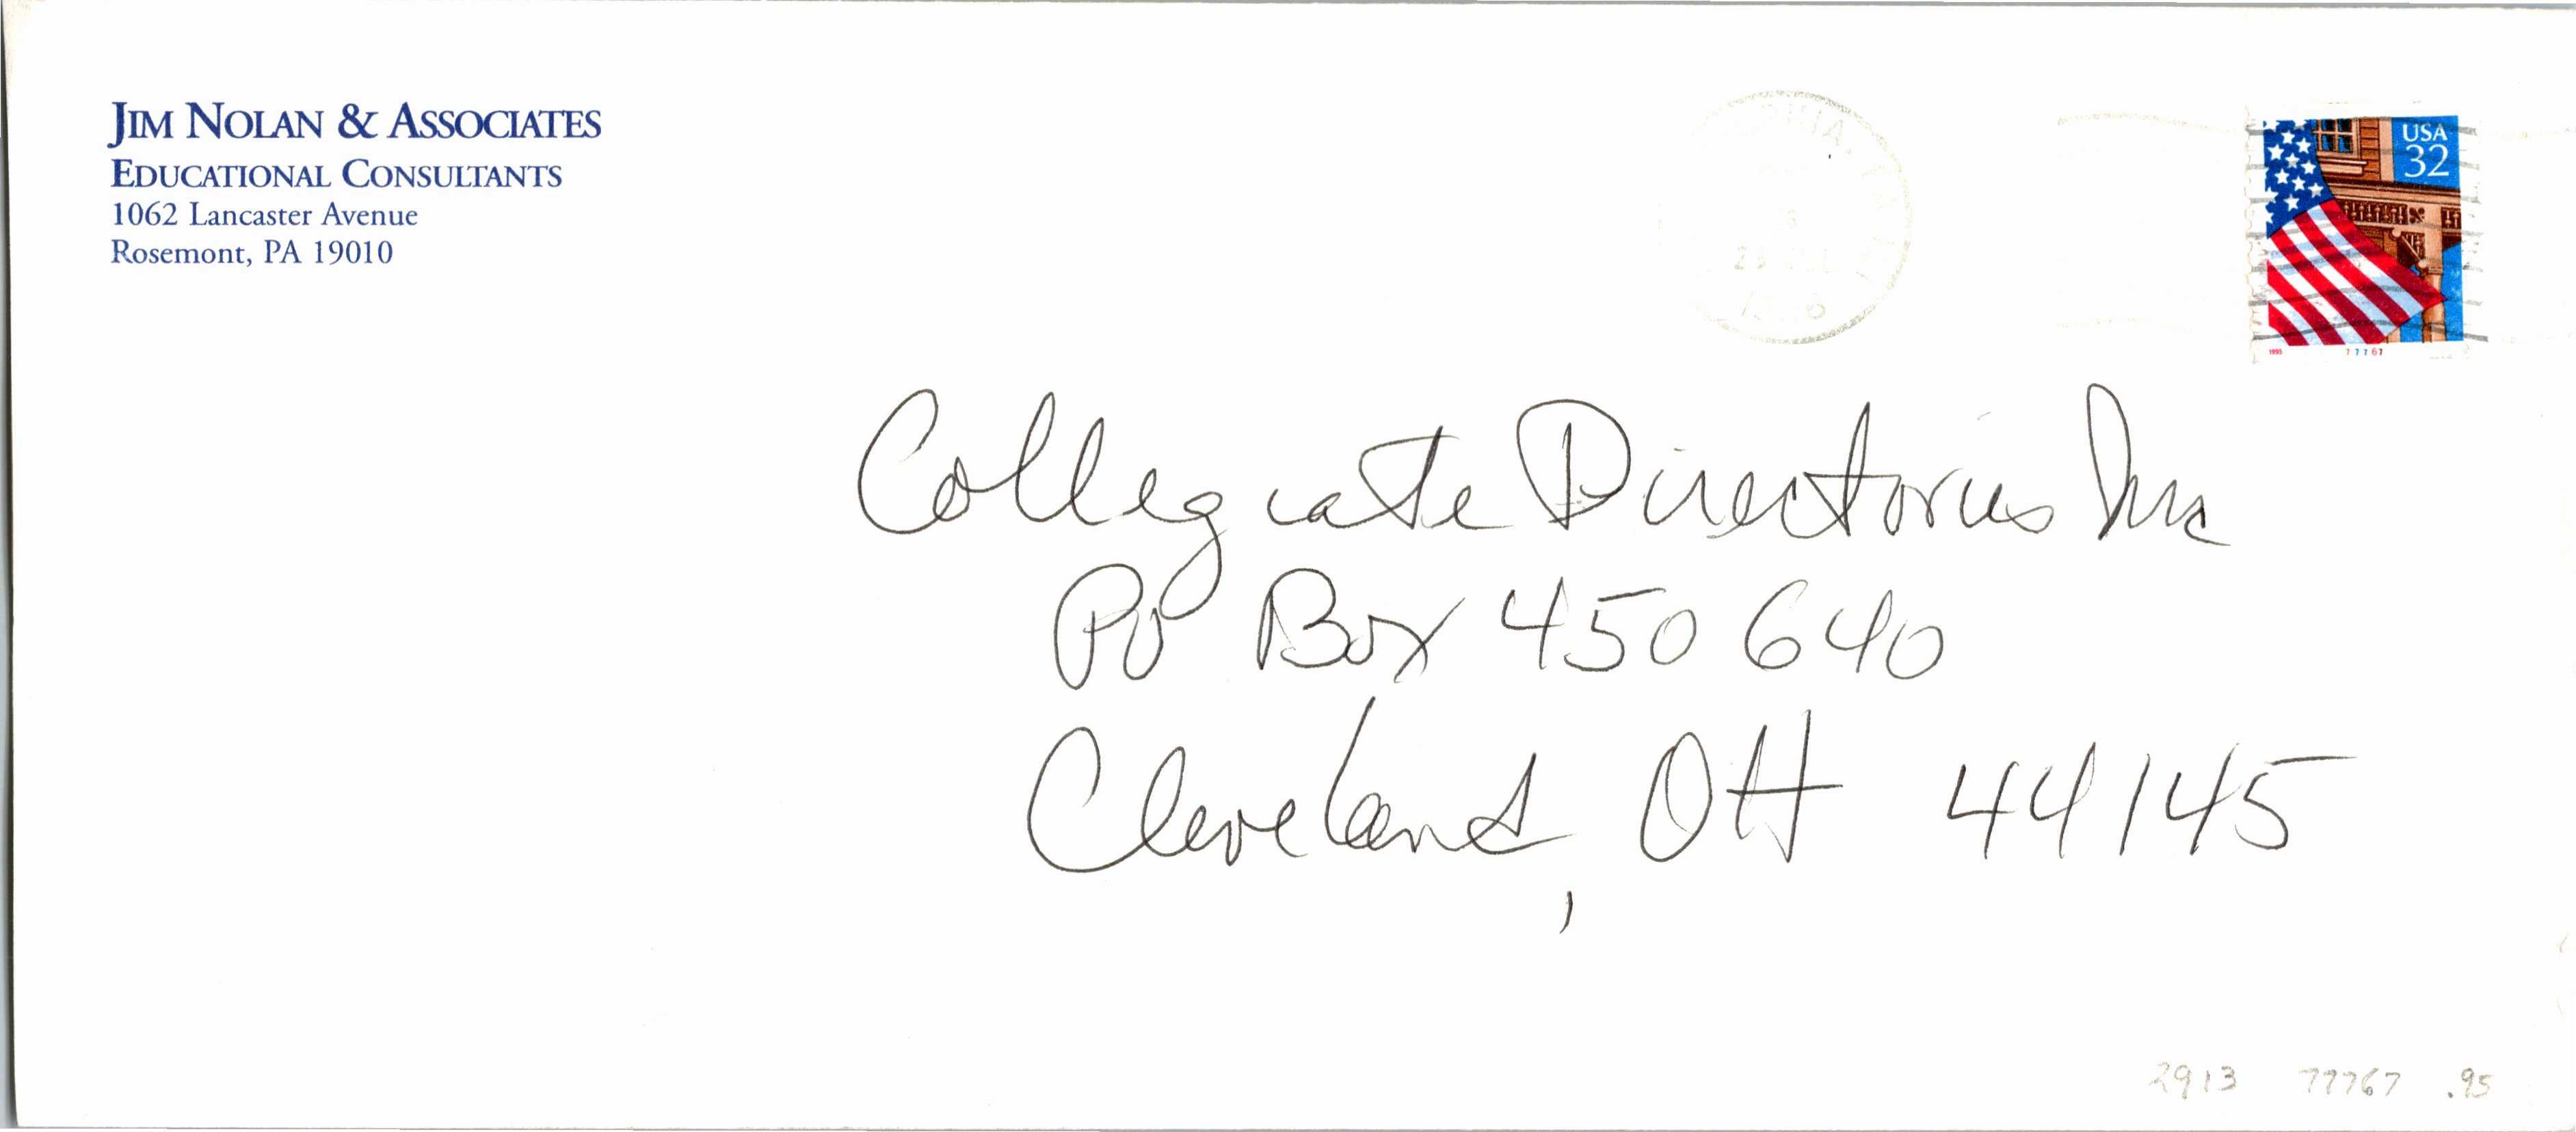 JIM NOLAN & ASSOCIATES
EDUCATIONAL CONSULTANTS
1062 Lancaster Avenue
Rosemont, PA 19010
USA
32
1995
77767
Collegiate Directories Inc
PO Box 450640
Cleveland, OH 44145
2913 77767 .95